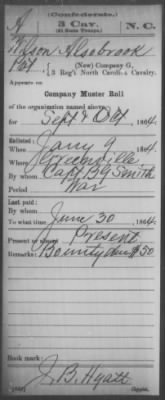 (Confederate.)
A 3 Cav. N. C.
(41 State Troops.)
Wilson Alsobrook
Pvt, (New) Company G,
3 Reg't North Carolina Cavalry.
Appears on
Company Muster Roll
of the organization named above,
for Sept & Oct, 1864.
Enlisted:
When Jany 9, 1864.
Where Greenville
By whom Capt B G Smith
Period War
Last paid:
By whom
To what time June 30, 1864.
Present or absent Present
Remarks: Bounty due $50
Book mark:
J. B. Hyatt
(642) Copyist.